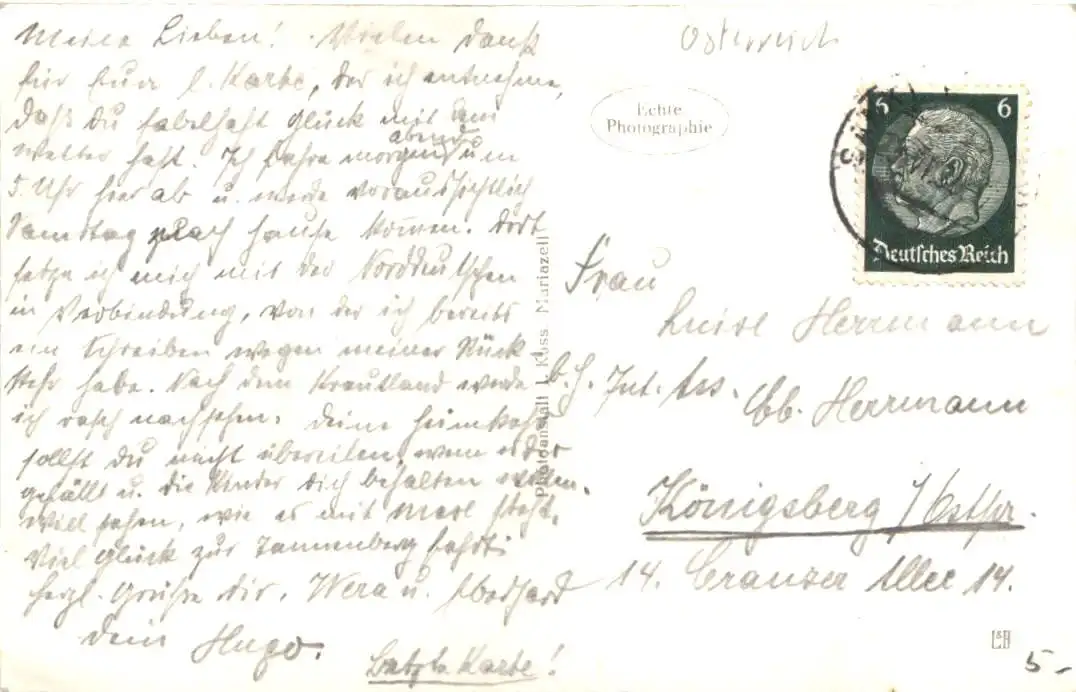 Meine Lieben! Vielen Dank
für Eure l. Karte, der ich entnehme,
daß du fabelhaft Glück mit dem
Wetter hast. Ich fahre morgen abend um
5 Uhr hier ab u. werde voraussichtlich
Samstag nach Hause kommen. Dort
setze ich mich mit der Norddeutschen
in Verbindung, von der ich bereits
ein Schreiben wegen meiner Rück-
kehr habe. Nach dem Krautland werde
ich rasch nachsehen. Deine Heimkehr
sollst du nicht übereilen, wenn es dir
gefällt u. die Kinder dich behalten wollen.
Will sehen, wie es mit steht.
Viel Glück zur Tannenbergfahrt!
Herzl. Grüße dir, Wera u. Eberhard
dein Hugo.
Letzte Karte!
Österreich
Echte
Photographie
6 6
Deutsches Reich
Photoanstalt J. Kuss Mariazell
Frau
Luise Herrmann
b. H. Int. Ass. Eb. Herrmann
Königsberg / Ostpr.
14. Cranzer Allee 14.
5-